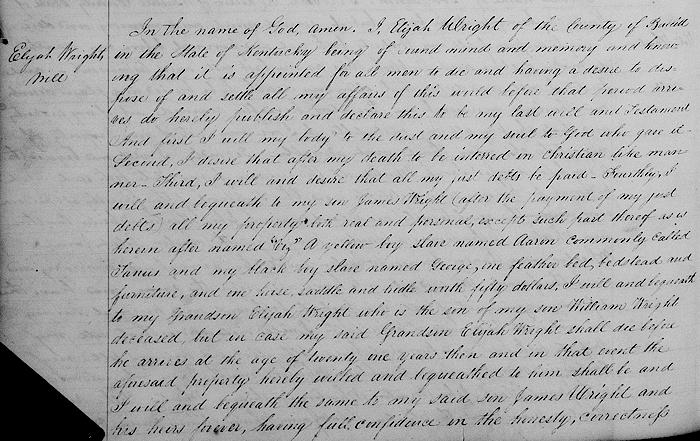 Elijah Wright's
Will
In the name of God, Amen. I, Elijah Wright of the County of
in the State of Kentucky being of sound mind and memory and know-
ing that it is appointed for all men to die and having a desire to dis-
pose of and settle all my affairs of this world before that period arri-
ves do hereby publish and declare this to be my last will and Testament
And first I will my body to the dust and my soul to God who gave it
Second, I desire that after my death to be interred in christian like man
ner - Third, I will and desire that all my just debts be paid - Fourthly, I
will and bequeath to my son James Wright (after the payment of my just
debts) all my property both real and personal, except such part thereof as is
herein after named "viz" A yellow boy slave named Aaron commonly called
Junius and my black boy slave named George, one feather bed, bedstead and
furniture, and one horse, saddle and bridle worth fifty dollars, I will and bequeath
to my Grandson Elijah Wright who is the son of my son William Wright
deceased, but in case my said Grandson Elijah Wright shall die before
he arrives at the age of twenty one years then and in that event the
aforesaid property hereby willed and bequeathed to him shall be and
I will and bequeath the same to my said son James Wright and
his heirs forever, having full confidence in the honesty, correctness